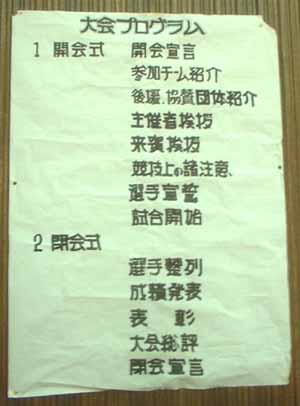 大会プログラム
1 開会式 開会宣言
参加チーム紹介
後援、協賛団体紹介
主催者挨拶
来賓挨拶
競技上の諸注意、
選手宣誓
試合開始
2 閉会式
選手整列
成績発表
表 彰
大会総評
閉会宣言